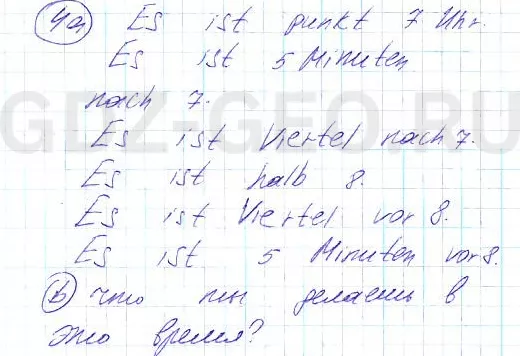 4a) Es ist punkt 7 Uhr.
Es ist 5 Minuten
nach 7.
GDZ-GEO.RU
Es ist Viertel nach 7.
Es ist halb 8.
Es ist Viertel vor 8.
Es ist 5 Minuten vor 8.
b) Что ты делаешь в
это время?